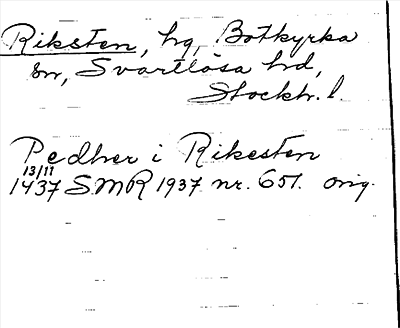 Riksten, hg, Botkyrka
sn, Svartlösa hd,
Stockh. l.
Pedher i Rikesten
13/11
1437 SMR 1937 nr. 651. orig.